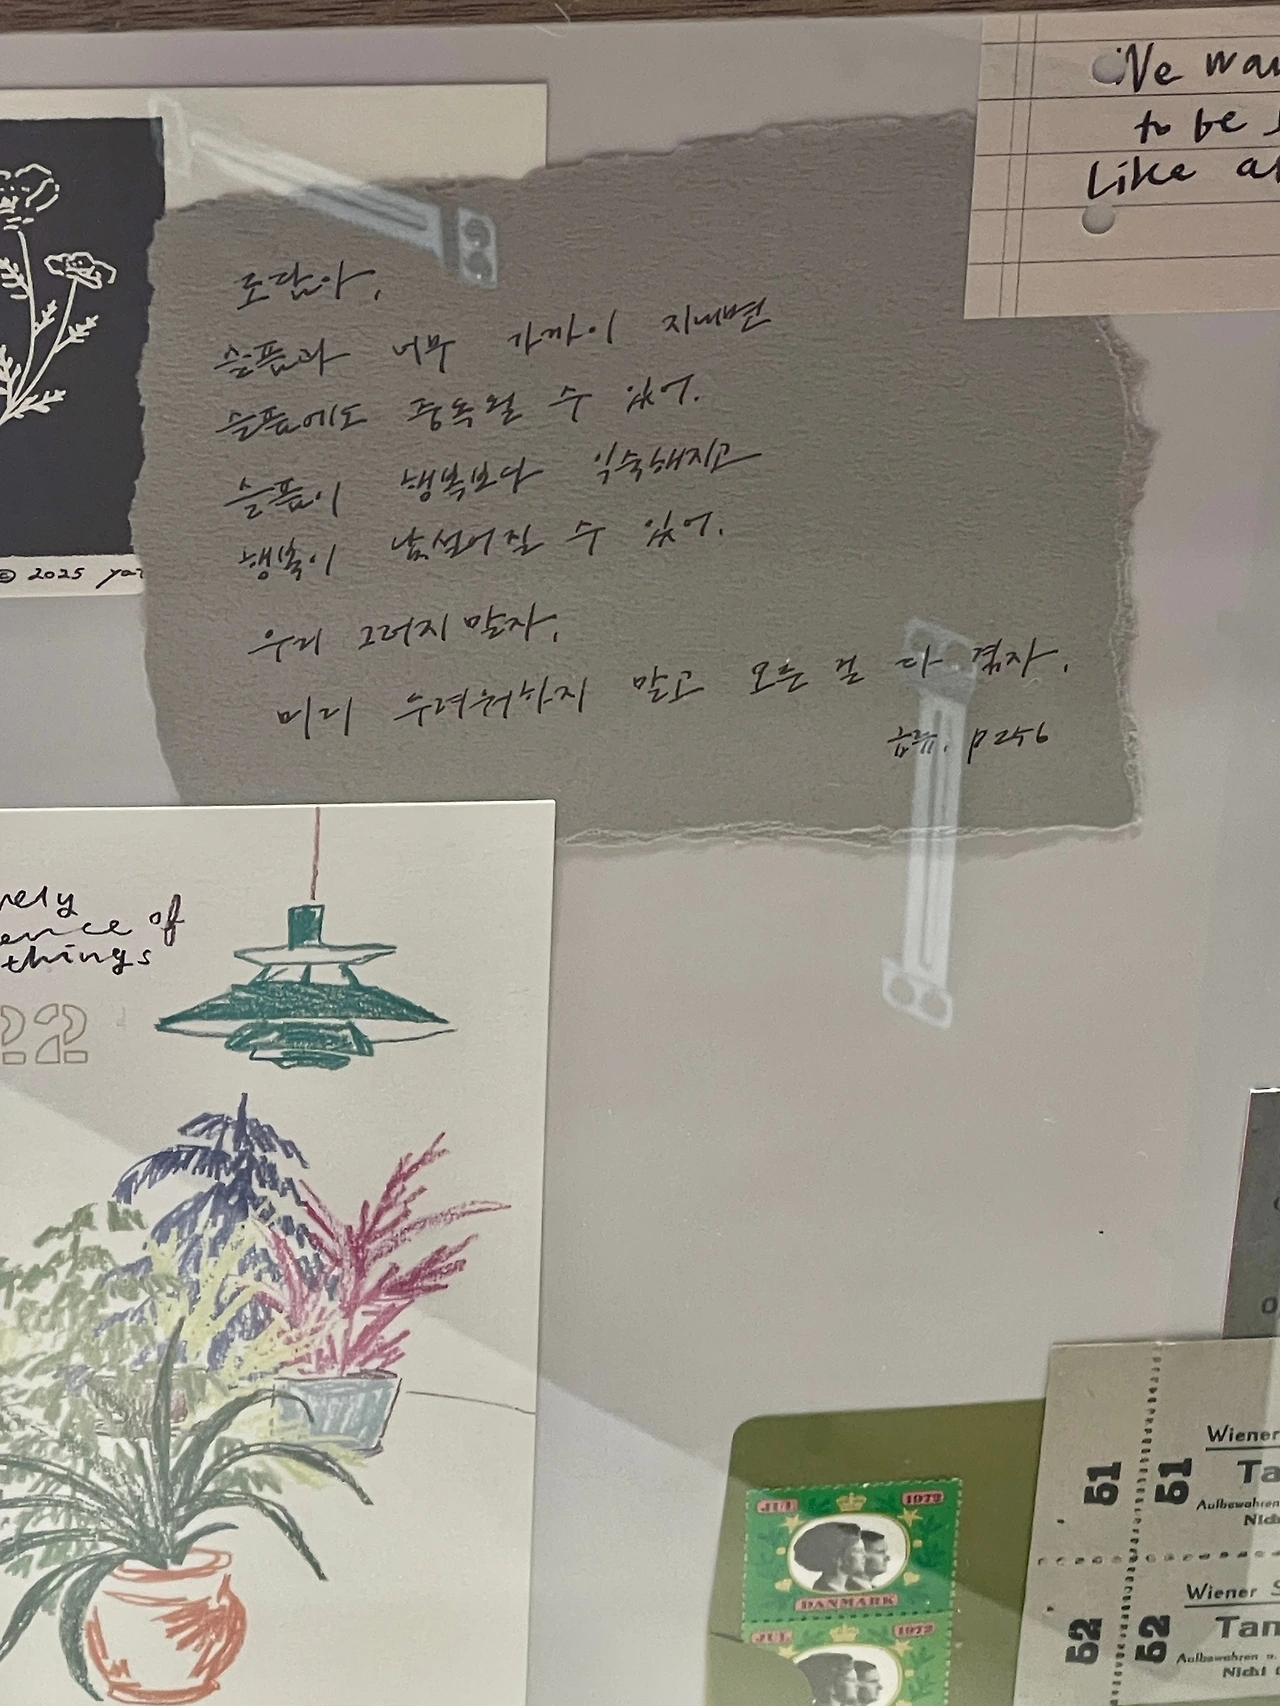 've wan
to be
Like
도담아,
슬픔과 너무 가까이 지내면
슬픔에도 중독될 수 있어.
슬픔이 행복보다 익숙해지고
행복이 낯설어질 수 있어.
우리 그러지 말자,
미리 두려워하지 말고 모든 걸 다 겪자.
급류, p256
© 2025
rely
ence of
things
22
JUL 1972
DANMARK
JUL 1972
51 51
Wiener
Ta
Aufbewahren
52 52
Wiener S
Tan
Aufbewahren u.